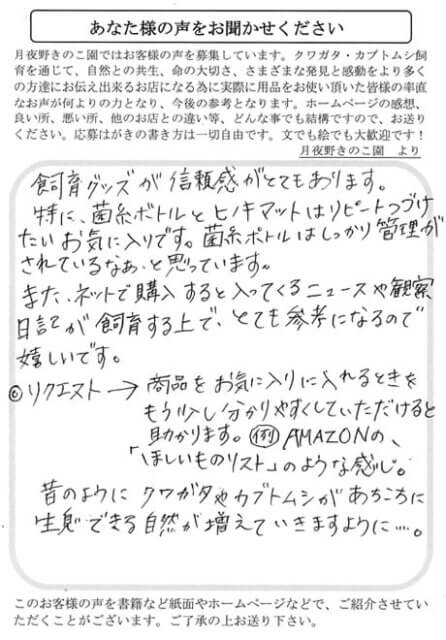 あなた様の声をお聞かせください
月夜野きのこ園ではお客様の声を募集しています。クワガタ・カブトムシ飼
育を通じて、自然との共生、命の大切さ、さまざまな発見と感動をより多く
の方達にお伝え出来るお店になる為に実際に用品をお使い頂いた皆様の率直
なお声が何よりの力となり、今後の参考となります。ホームページの感想、
良い所、悪い所、他のお店との違い等、どんな事でも結構ですので、お送り
ください。応募はがきの書き方は一切自由です。文でも絵でも大歓迎です！
月夜野きのこ園　より
飼育グッズが信頼感がとてもあります。
特に、菌糸ボトルとヒノキマットはリピートつづけ
たいお気に入りです。菌糸ボトルはしっかり管理が
されているなぁ、と思っています。
また、ネットで購入すると入ってくるニュースや観察
日記が飼育する上で、とても参考になるので
嬉しいです。
◎リクエスト→商品をお気に入りに入れるときを
もう少し分かりやすくしていただけると
助かります。例AMAZONの、
「ほしいものリスト」のような感じ。
昔のようにクワガタやカブトムシがあちこちに
生息できる自然が増えていきますように…。
このお客様の声を書籍など紙面やホームページなどで、ご紹介させてい
ただくことがございます。ご了承の上お送り下さい。